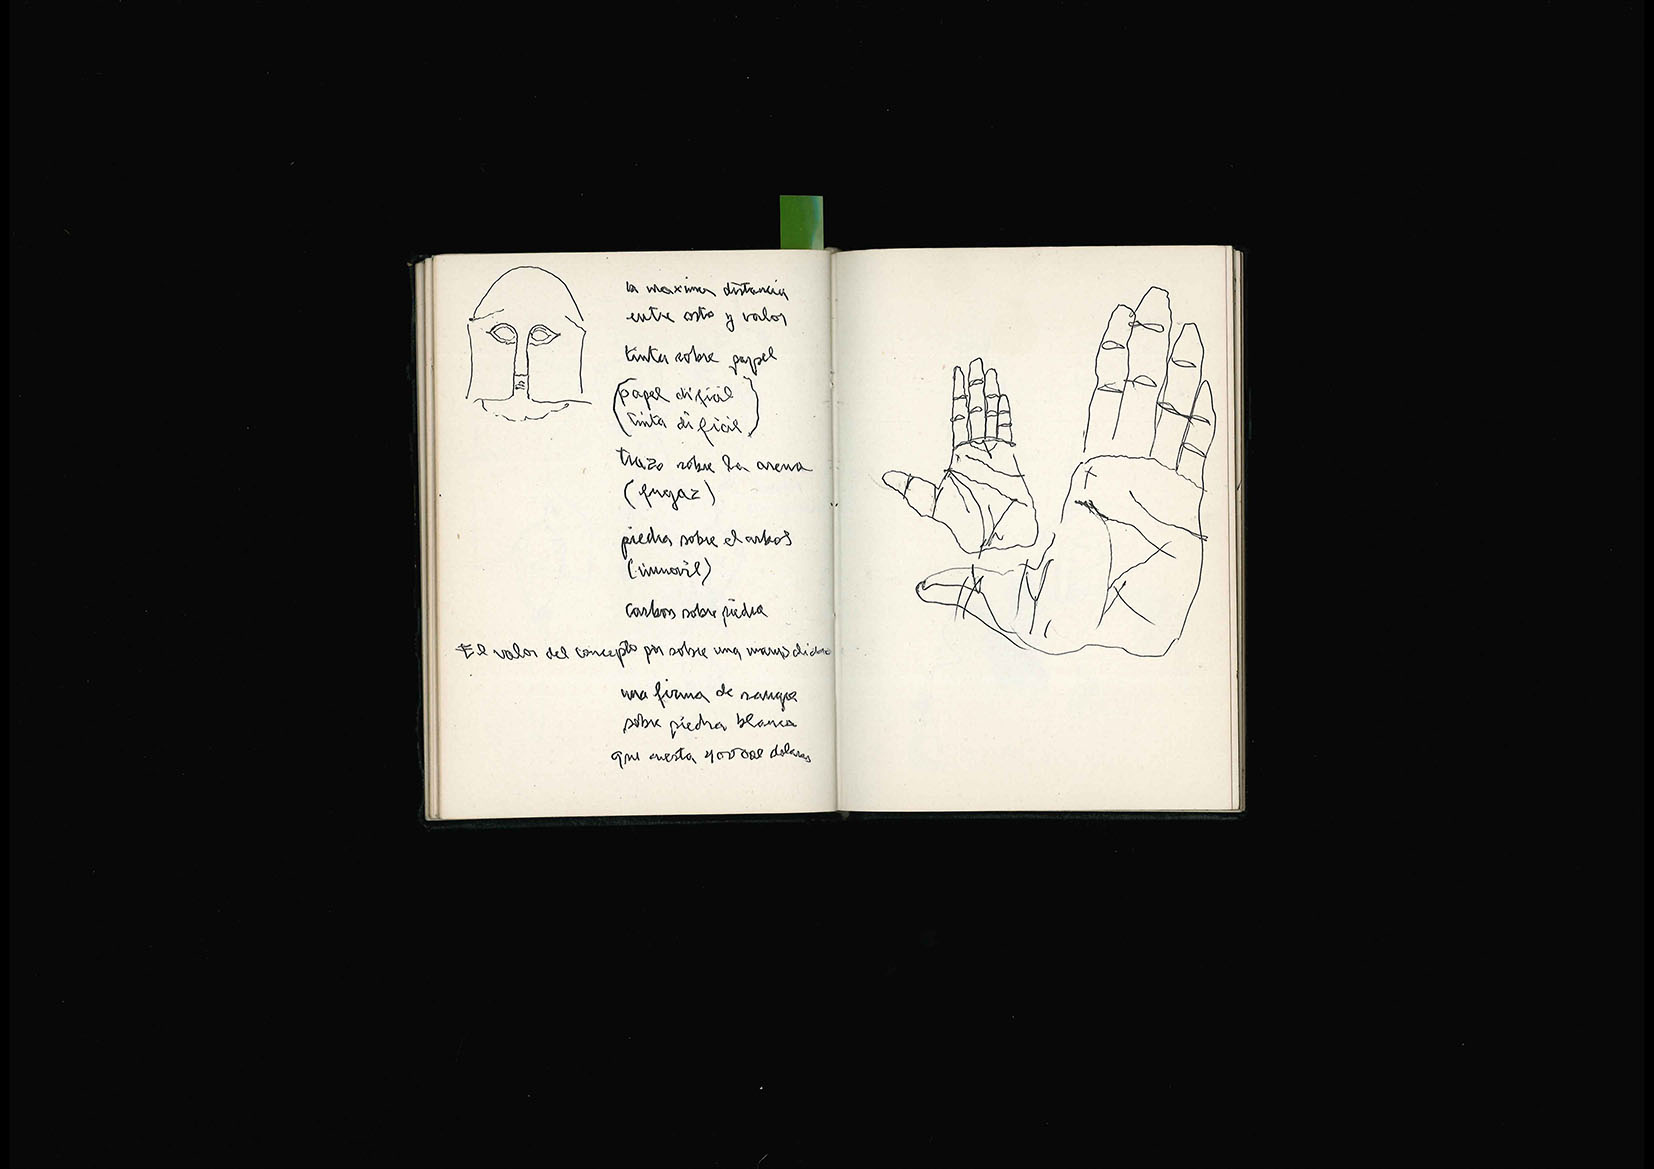 la maxima distancia
entre costo y valor
tinta sobre papel
(papel dificil
tinta dificil)
trazo sobre la arena
(fugaz)
piedra sobre el arbol
(inmovil)
carbon sobre piedra
El valor del concepto por sobre una
una firma de sangre
sobre piedra blanca
que cuesta dolares